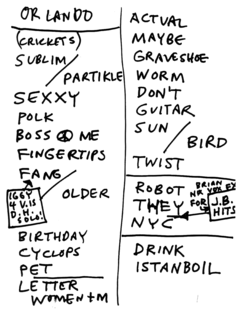 ORLANDO
(CRICKETS)
SUBLIM
PARTIKLE
SEXXY
POLK
BOSS ME
FINGERTIPS
FANG
OLDER
IGGY
4 V.IS
D.H.
SOLO!
BIRTHDAY
CYCLOPS
PET
LETTER
WOMEN + M
ACTUAL
MAYBE
GRAVESHOE
WORM
DON'T
GUITAR
SUN
BIRD
TWIST
ROBOT
THEY
NYC
BRIAN
NR
FOR
J.B.
HITS
DRINK
ISTANBOIL